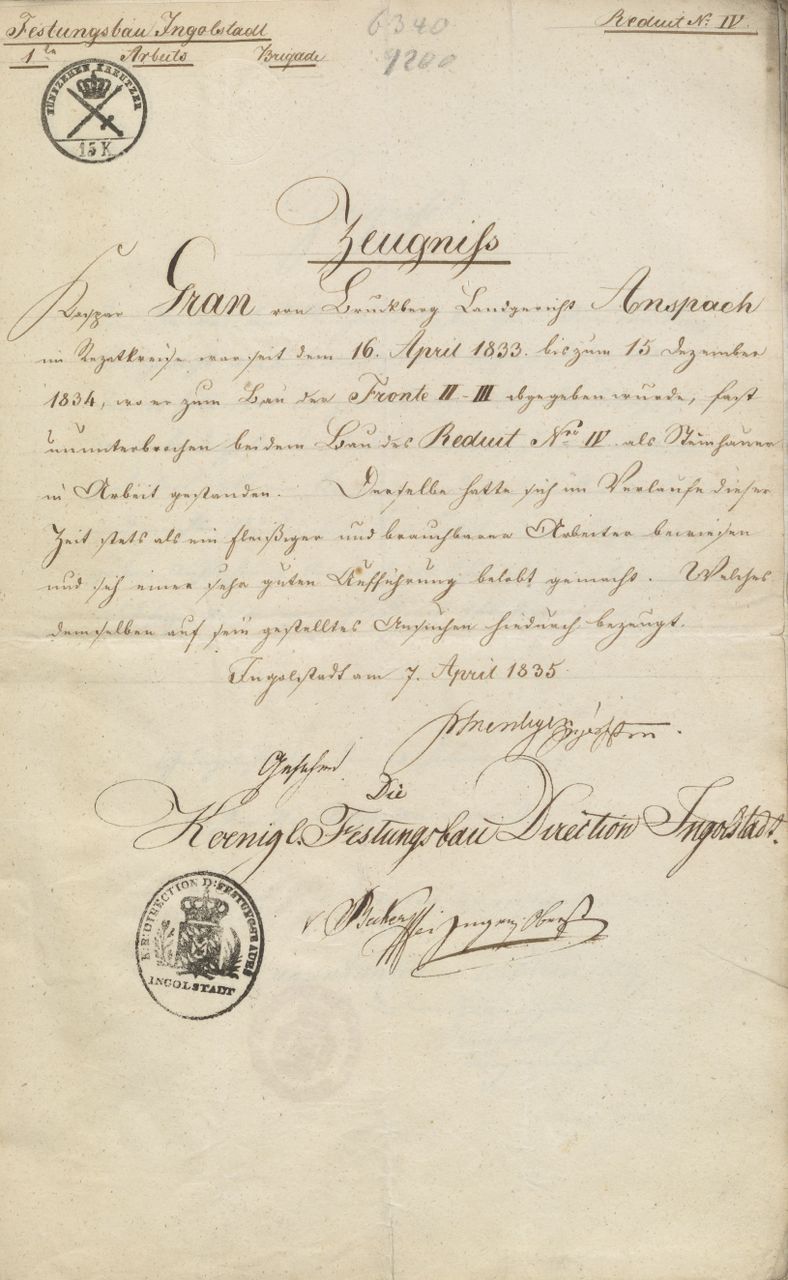 Festungsbau Ingolstadt
Reduit No. IV.
6340
1te Arbeits Brigade
9200
FÜNFZEHEN KREUTZER
15 K
Zeugniss
Kaspar Gran von Bruckberg Landgerichts Anspach
im Rezatkreise war seit dem 16. April 1833. bis zum 15 Dezember
1834, wo er zum Bau der Fronte II-III abgegeben wurde, fast
ununterbrochen bei dem Bau des Reduit Nro IV. als Steinhauer
in Arbeit gestanden. Derselbe hatte sich im Verlaufe dieser
Zeit stets als ein fleißiger und brauchbarer Arbeiter bewiesen
und sich einer sehr guten Aufführung belobt gemacht. Welches
demselben auf sein gestelltes Ansuchen hiedurch bezeugt.
Ingolstadt am 7. April 1835.
Gesehen
Die
Koenigl. Festungsbau Direction Ingolstadt.
K:B: DIRECTION D: FESTUNGSBAUES
INGOLSTADT
v. Oberst